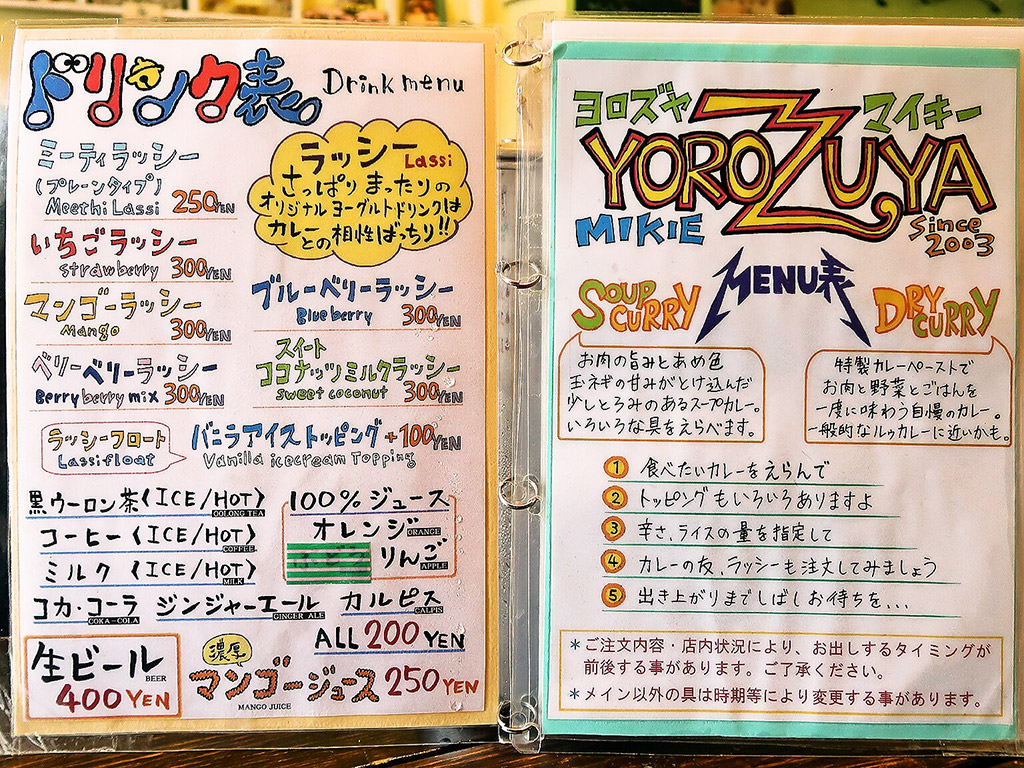 ドリンク表 Drink menu
ミーティラッシー
(プレーンタイプ)
Meethi Lassi 250YEN
ラッシー Lassi
さっぱりまったりの
オリジナルヨーグルトドリンクは
カレーとの相性ばっちり!!
いちごラッシー
strawberry 300YEN
マンゴーラッシー
Mango 300YEN
ブルーベリーラッシー
Blueberry 300YEN
ベリーベリーラッシー
Berryberry mix 300YEN
スイート
ココナッツミルクラッシー
sweet coconut 300YEN
ラッシーフロート
Lassifloat
バニラアイストッピング+100YEN
Vanilla icecream Topping
黒ウーロン茶〈ICE/HOT〉
OOLONG TEA
コーヒー〈ICE/HOT〉
COFFEE
ミルク〈ICE/HOT〉
MILK
100%ジュース
オレンジ ORANGE
りんご APPLE
コカ・コーラ ジンジャーエール カルピス
COKA-COLA GINGER ALE CALPIS
ALL 200 YEN
生ビール BEER
400 YEN
濃厚
マンゴージュース 250 YEN
MANGO JUICE
ヨロズヤ マイキー
YOROZUYA
MIKIE
Since
2003
MENU表
SOUP
CURRY
お肉の旨みとあめ色
玉ネギの甘みがとけ込んだ
少しとろみのあるスープカレー。
いろいろな具をえらべます。
DRY
CURRY
特製カレーペーストで
お肉と野菜とごはんを
一度に味わう自慢のカレー。
一般的なルゥカレーに近いかも。
1 食べたいカレーをえらんで
2 トッピングもいろいろありますよ
3 辛さ、ライスの量を指定して
4 カレーの友、ラッシーも注文してみましょう
5 出き上がりまでしばしお待ちを...
*ご注文内容・店内状況により、お出しするタイミングが
前後する事があります。ご了承ください。
*メイン以外の具は時期等により変更する事があります。